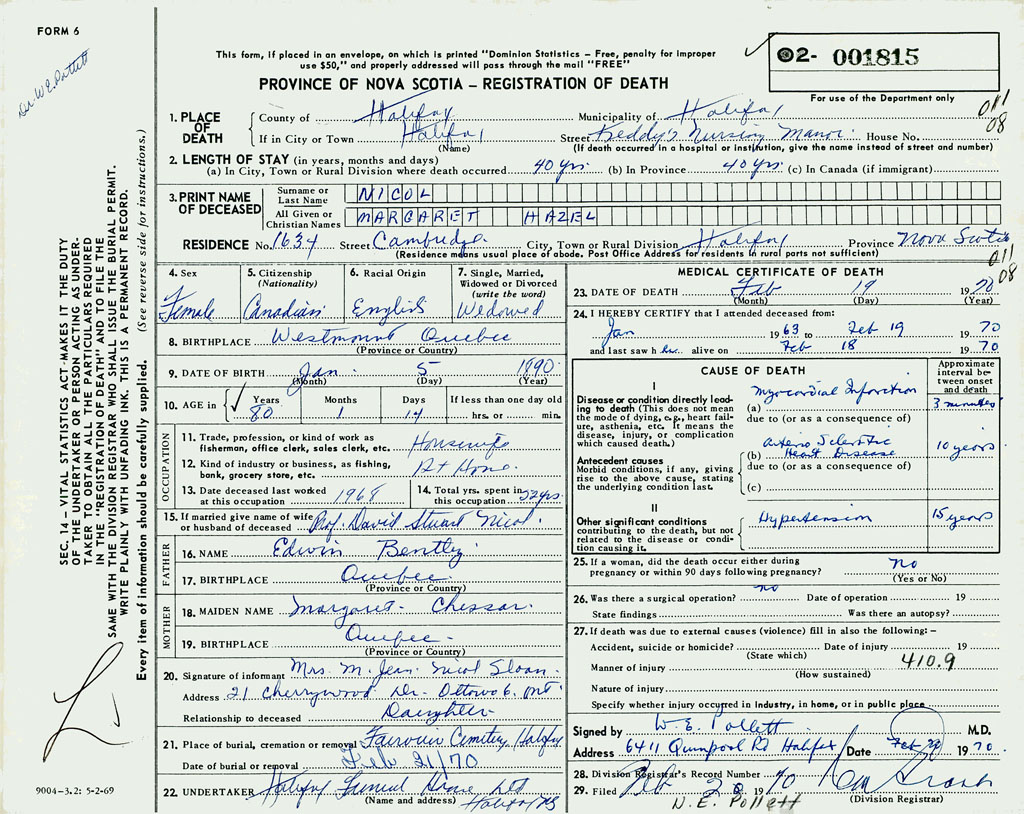 FORM 6
Dr. W. E. Pollett
This form, if placed in an envelope, on which is printed "Dominion Statistics – Free, penalty for improper
use $50," and properly addressed will pass through the mail "FREE"
02- 001815
For use of the Department only
PROVINCE OF NOVA SCOTIA – REGISTRATION OF DEATH
011
08
1. PLACE OF DEATH
County of Halifax Municipality of Halifax
If in City or Town Halifax Street Keddy's Nursing Manor House No.
(Name) (If death occurred in a hospital or institution, give the name instead of street and number)
2. LENGTH OF STAY (in years, months and days)
(a) In City, Town or Rural Division where death occurred 40 yrs. (b) In Province 40 yrs. (c) In Canada (if immigrant)
3. PRINT NAME OF DECEASED
Surname or Last Name NICOL
All Given or Christian Names MARGARET HAZEL
RESIDENCE No. 1634 Street Cambridge City, Town or Rural Division Halifax Province Nova Scotia
(Residence means usual place of abode. Post Office Address for residents in rural parts not sufficient)
011
08
4. Sex Female
5. Citizenship (Nationality) Canadian
6. Racial Origin English
7. Single, Married, Widowed or Divorced (write the word) Widowed
8. BIRTHPLACE Westmount Quebec
(Province or Country)
9. DATE OF BIRTH Jan. 5 1890
(Month) (Day) (Year)
10. AGE in Years 80 Months 1 Days 14 If less than one day old hrs. or min.
OCCUPATION
11. Trade, profession, or kind of work as fisherman, office clerk, sales clerk, etc. Housewife
12. Kind of industry or business, as fishing, bank, grocery store, etc. At Home.
13. Date deceased last worked at this occupation 1968
14. Total yrs. spent in this occupation 52 yrs.
15. If married give name of wife or husband of deceased Prof. David Stuart Nicol.
FATHER
16. NAME Edwin Bentley
17. BIRTHPLACE Quebec
(Province or Country)
MOTHER
18. MAIDEN NAME Margaret Chessar
19. BIRTHPLACE Quebec
(Province or Country)
20. Signature of informant Mrs. M. Jean Nicol Sloan.
Address 21 Cherrywood Dr. Ottawa 6. Ont.
Relationship to deceased Daughter
21. Place of burial, cremation or removal Fairview Cemetery, Halifax
Date of burial or removal Feb 21/70
22. UNDERTAKER Halifax Funeral Home Ltd
(Name and address) Halifax NS
MEDICAL CERTIFICATE OF DEATH
23. DATE OF DEATH Feb 19 1970
(Month) (Day) (Year)
24. I HEREBY CERTIFY that I attended deceased from:
Jan 1963 to Feb 19 1970
and last saw her alive on Feb 18 1970
CAUSE OF DEATH
Approximate interval between onset and death
I
Disease or condition directly leading to death (This does not mean the mode of dying, e.g., heart failure, asthenia, etc. It means the disease, injury, or complication which caused death.)
(a) Myocardial Infarction 3 minutes
due to (or as a consequence of)
Antecedent causes
Morbid conditions, if any, giving rise to the above cause, stating the underlying condition last.
(b) Arterio Sclerotic Heart Disease 10 years
due to (or as a consequence of)
(c)
II
Other significant conditions contributing to the death, but not related to the disease or condition causing it.
Hypertension 15 years
25. If a woman, did the death occur either during pregnancy or within 90 days following pregnancy? no
(Yes or No)
26. Was there a surgical operation? no Date of operation 19
State findings Was there an autopsy?
27. If death was due to external causes (violence) fill in also the following: –
Accident, suicide or homicide? Date of injury 19
(State which)
Manner of injury 410.9
(How sustained)
Nature of injury
Specify whether injury occurred in industry, in home, or in public place
Signed by W. E. Pollett M.D.
Address 6411 Quinpool Rd Halifax Date Feb 20 1970.
28. Division Registrar's Record Number
29. Filed Feb 20 1970
(Division Registrar)
W. E. Pollett
SEC. 14 – VITAL STATISTICS ACT – MAKES IT THE DUTY
OF THE UNDERTAKER OR PERSON ACTING AS UNDER-
TAKER TO OBTAIN ALL THE PARTICULARS REQUIRED
IN THE "REGISTRATION OF DEATH" AND TO FILE THE
SAME WITH THE DIVISION REGISTRAR WHO SHALL ISSUE THE BURIAL PERMIT.
WRITE PLAINLY WITH UNFADING INK. THIS IS A PERMANENT RECORD.
Every item of information should be carefully supplied. (See reverse side for instructions.)
9004-3.2: 5-2-69